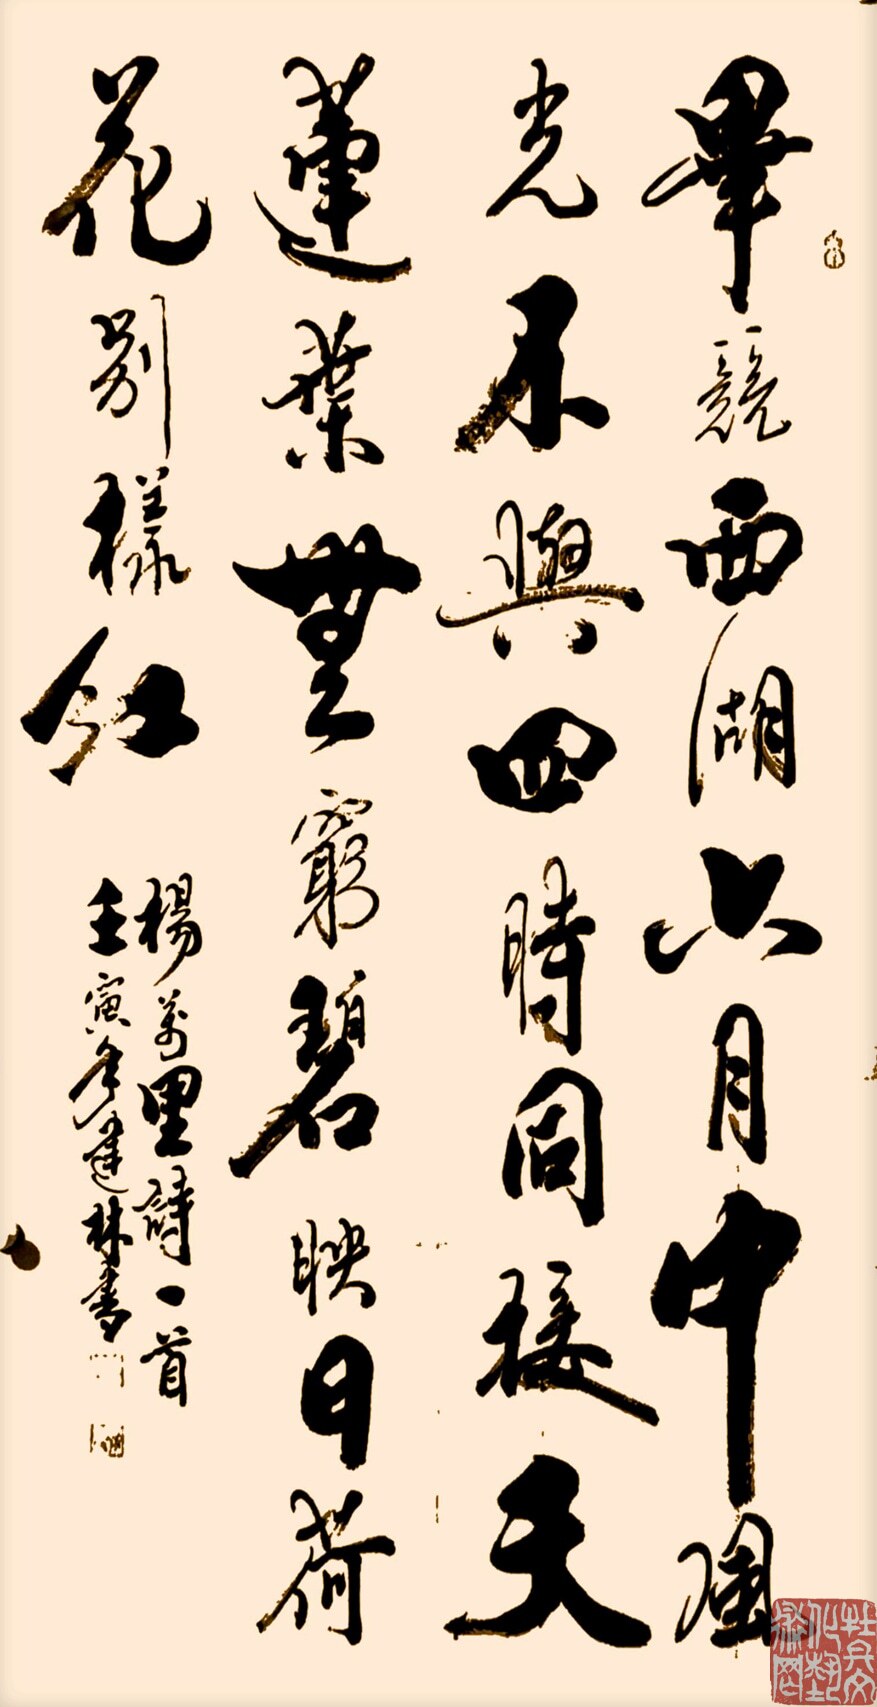 畢競西湖六月中風
光不與四時同接天
蓮葉無窮碧映日荷
花别樣紅
楊萬里詩一首
壬寅年建林書
牡丹文化藝術网